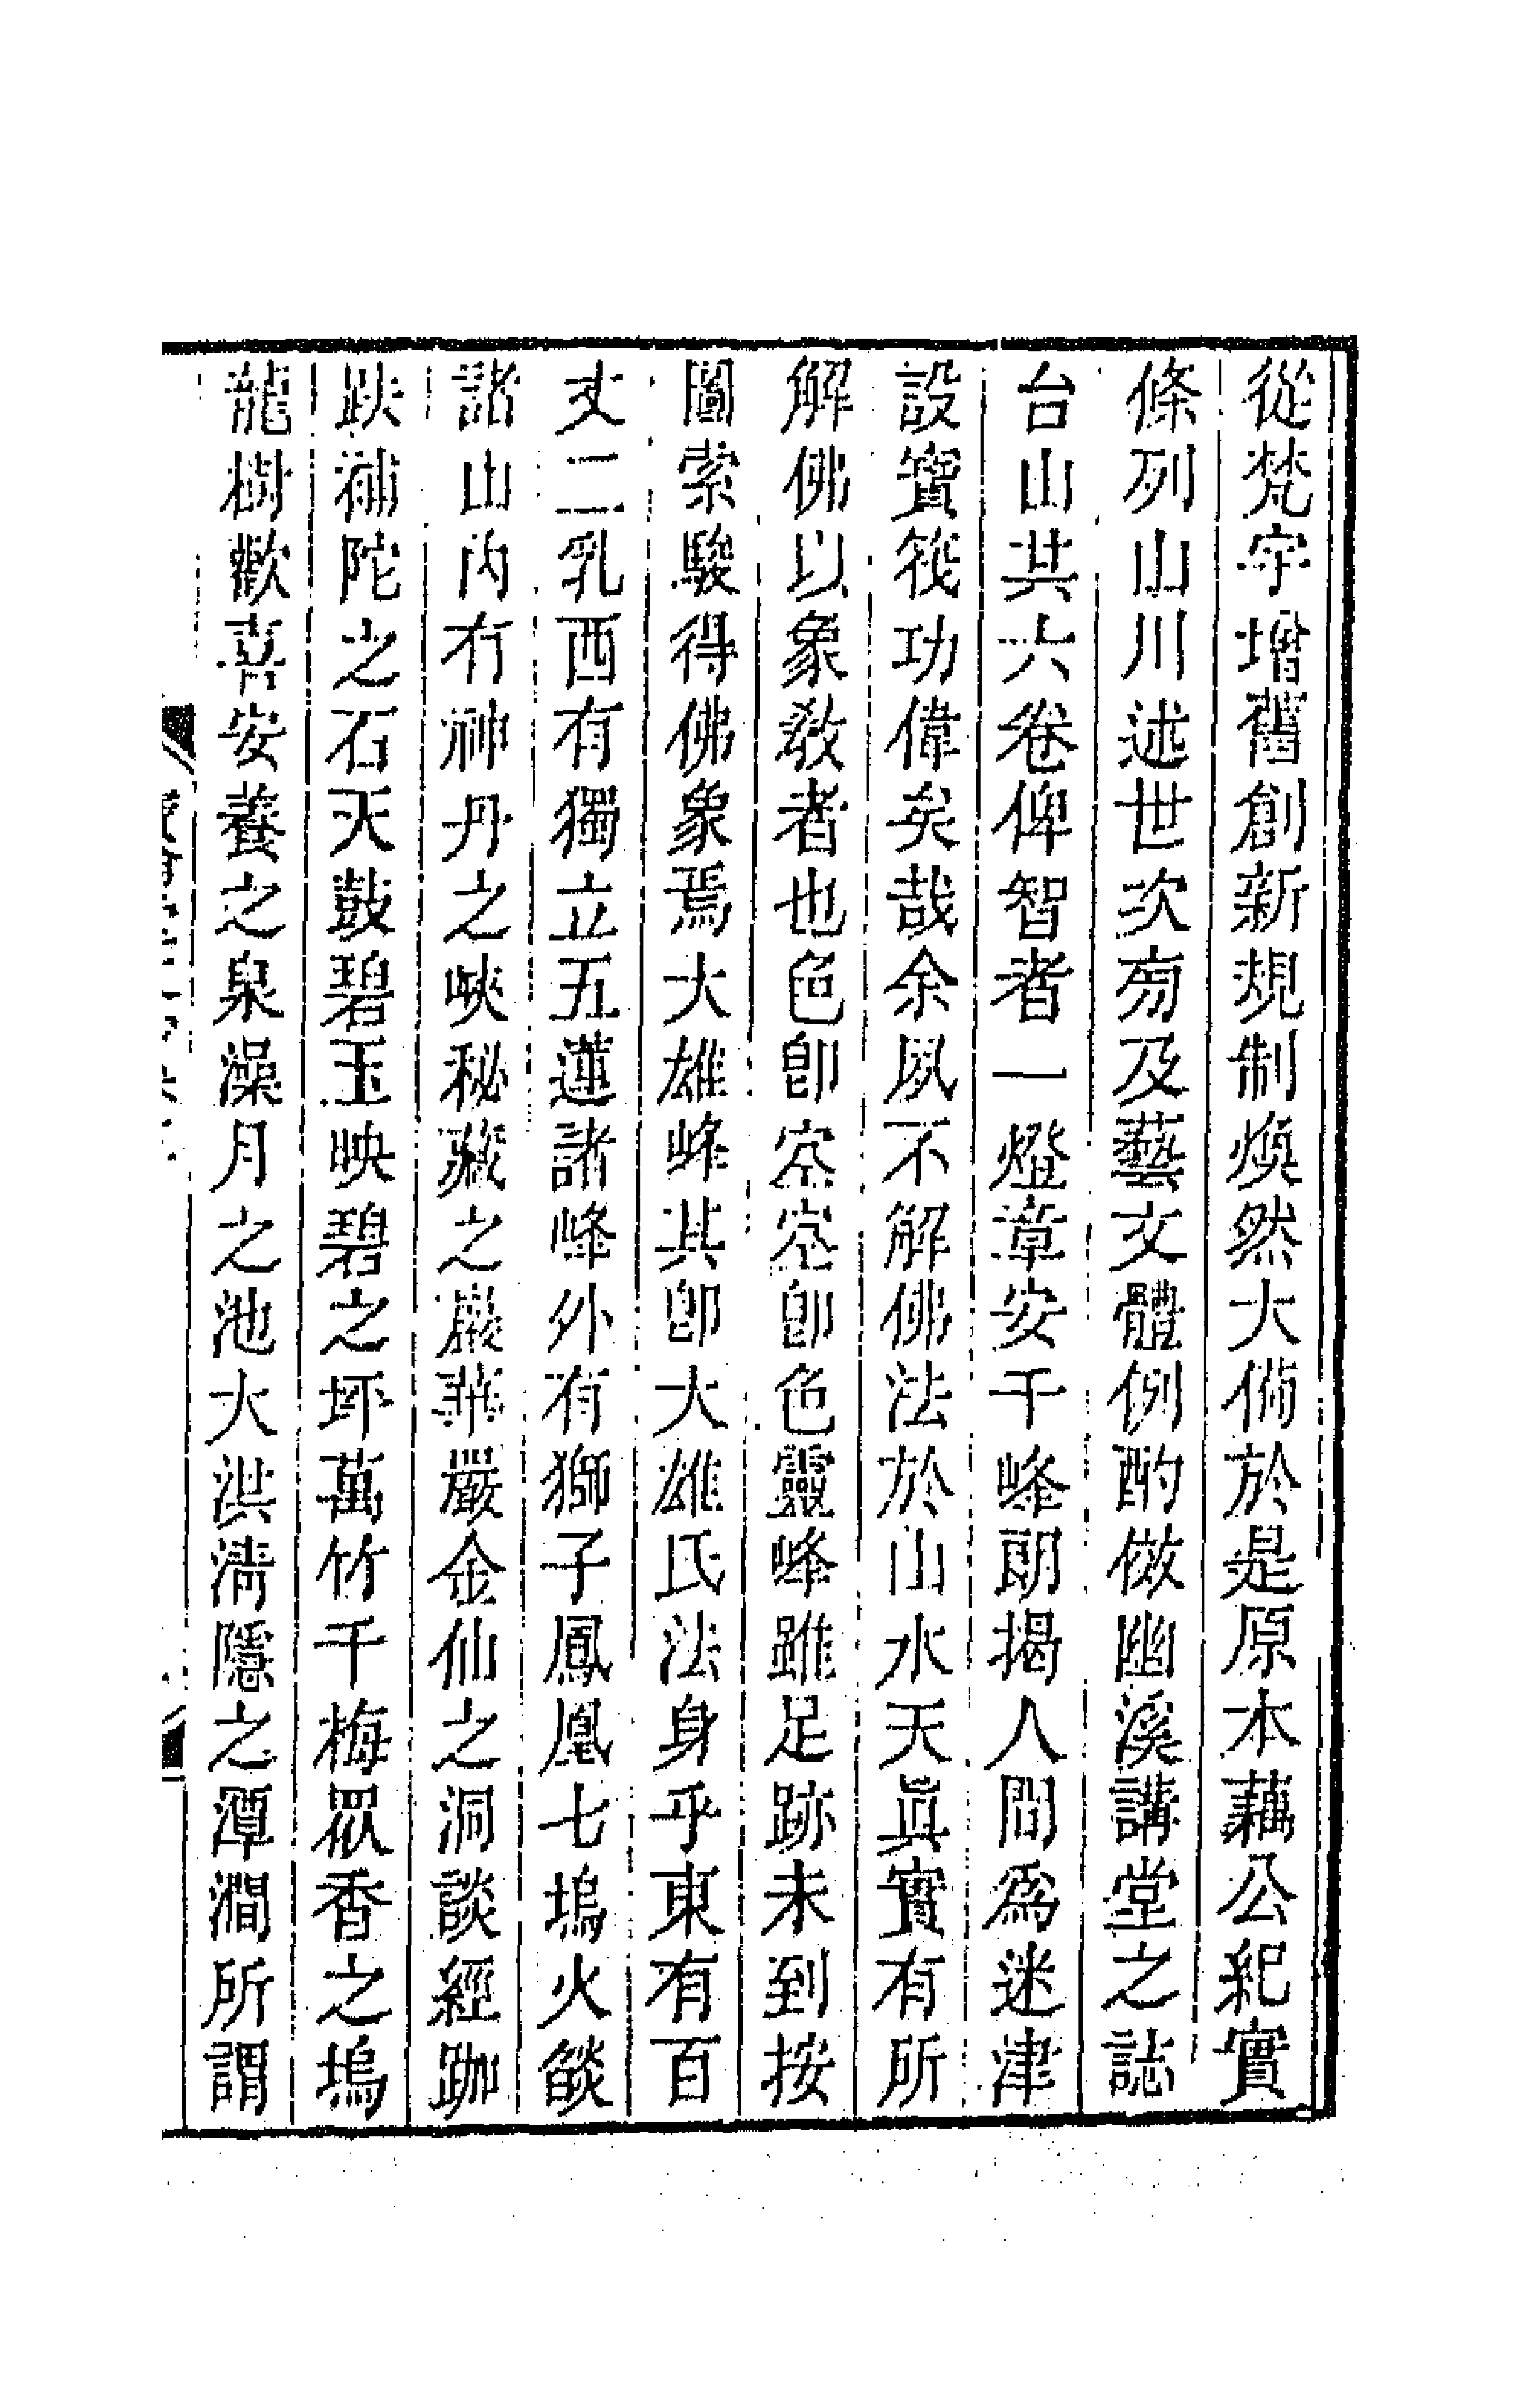 從梵宇增舊創新規制煥然大備於是原本藕公紀實
條列山川述世次旁及藝文體例酌倣幽溪講堂之誌
台山其六卷俾智者一燈章安千峰朗揭人間爲迷津
設寶筏功偉矣哉余夙不解佛法於山水天眞實有所
解佛以象教者也色卽空空卽色靈峰雖足跡未到按
圖索駿得佛象焉大雄峰其卽大雄氏法身乎東有百
丈二乳西有獨立五蓮諸峰外有獅子鳳凰七塢火燄
諸山內有神丹之峽秘藏之巖華嚴金仙之洞談經跏
趺補陀之石天鼓碧玉映碧之坪萬竹千梅眾香之塢
龍樹歡喜安養之泉澡月之池大洪淸隱之潭澗所謂